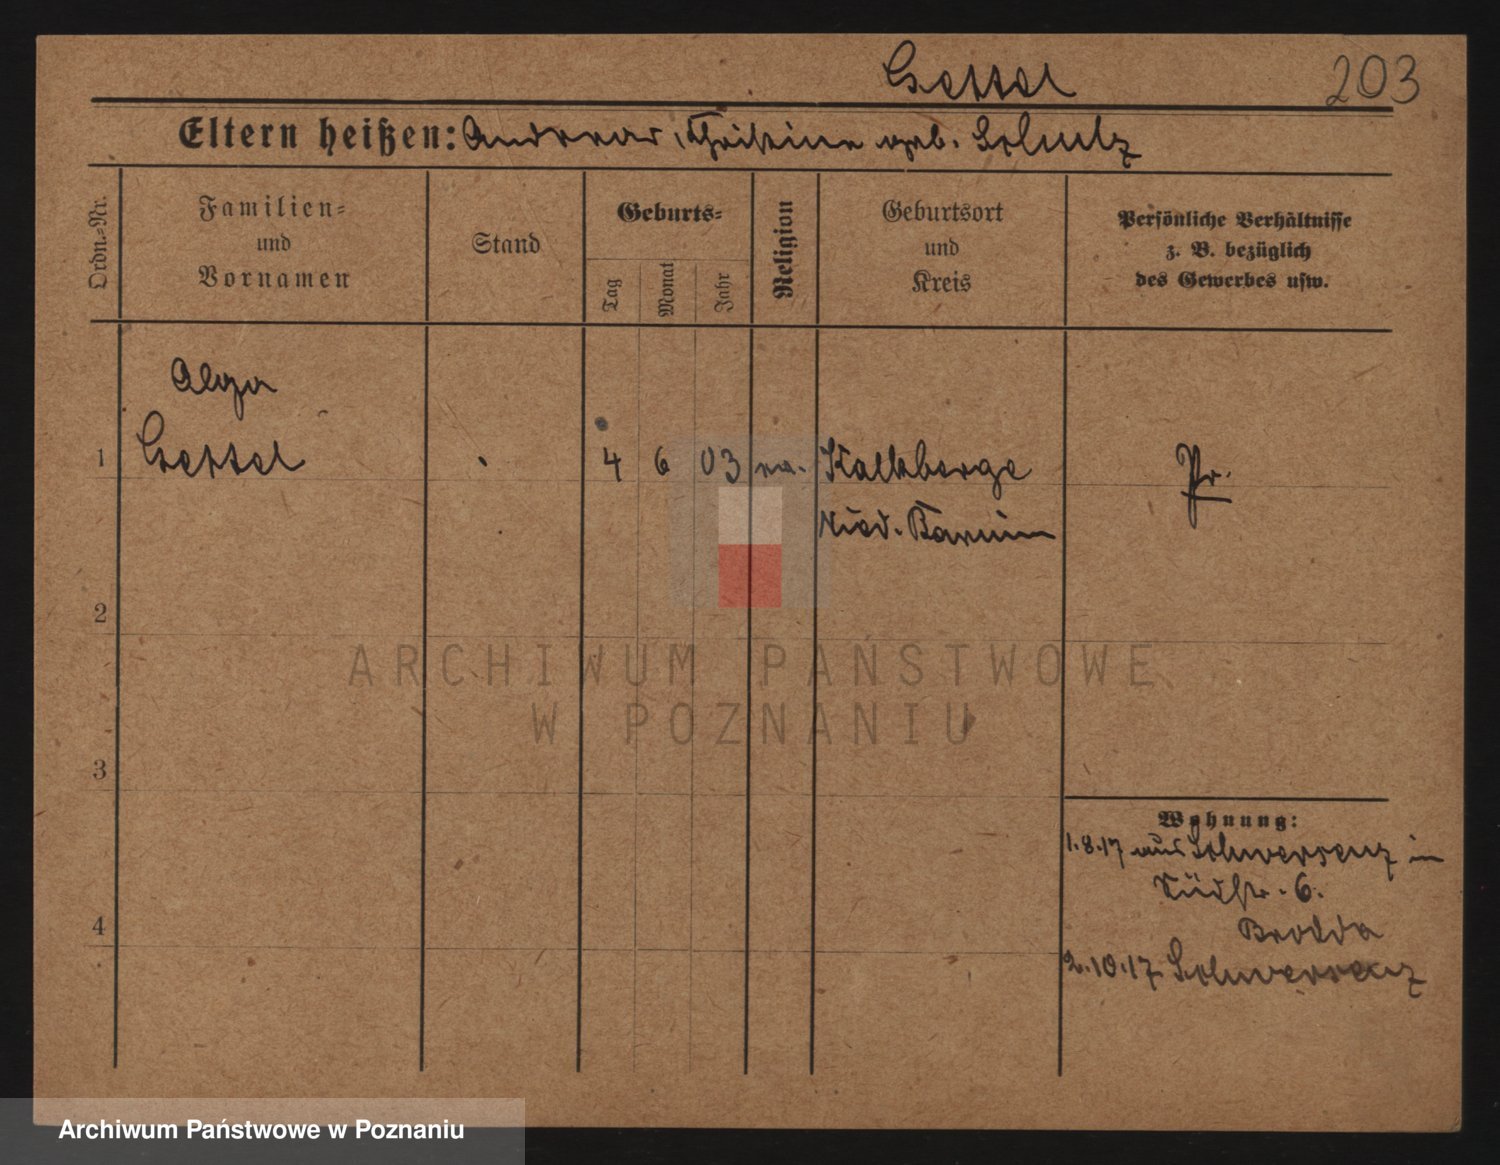 Gessel 203
Eltern heißen: Andreas, Christine geb. Schulz
Ordn.-Nr.
Familien-
und
Vornamen
Stand
Geburts-
Tag
Monat
Jahr
Religion
Geburtsort
und
Kreis
Persönliche Verhältnisse
z. B. bezüglich
des Gewerbes usw.
Olga
1 Gessel 4 6 03 ev. Kalkberge Pr.
Nied. Barnim
2
ARCHIWUM PAŃSTWOWE
W POZNANIU
3
Wohnung:
1.8.17 aus Schwersenz in
Südstr. 6.
4
2.10.17. Schwersenz
Archiwum Państwowe w Poznaniu